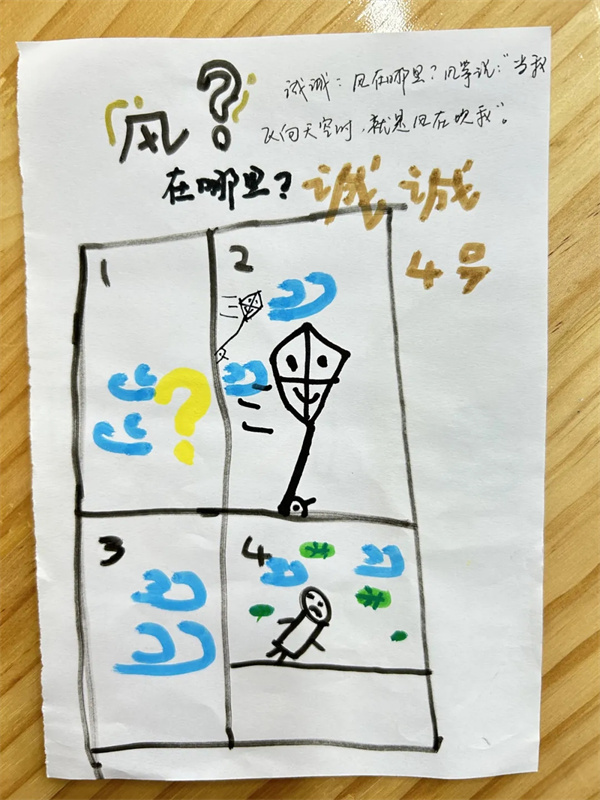 诚诚：风在哪里？风筝说：“当我
飞向天空时，就是风在吹我”。
风？
在哪里？
诚诚
4号
1
2
？
3
4